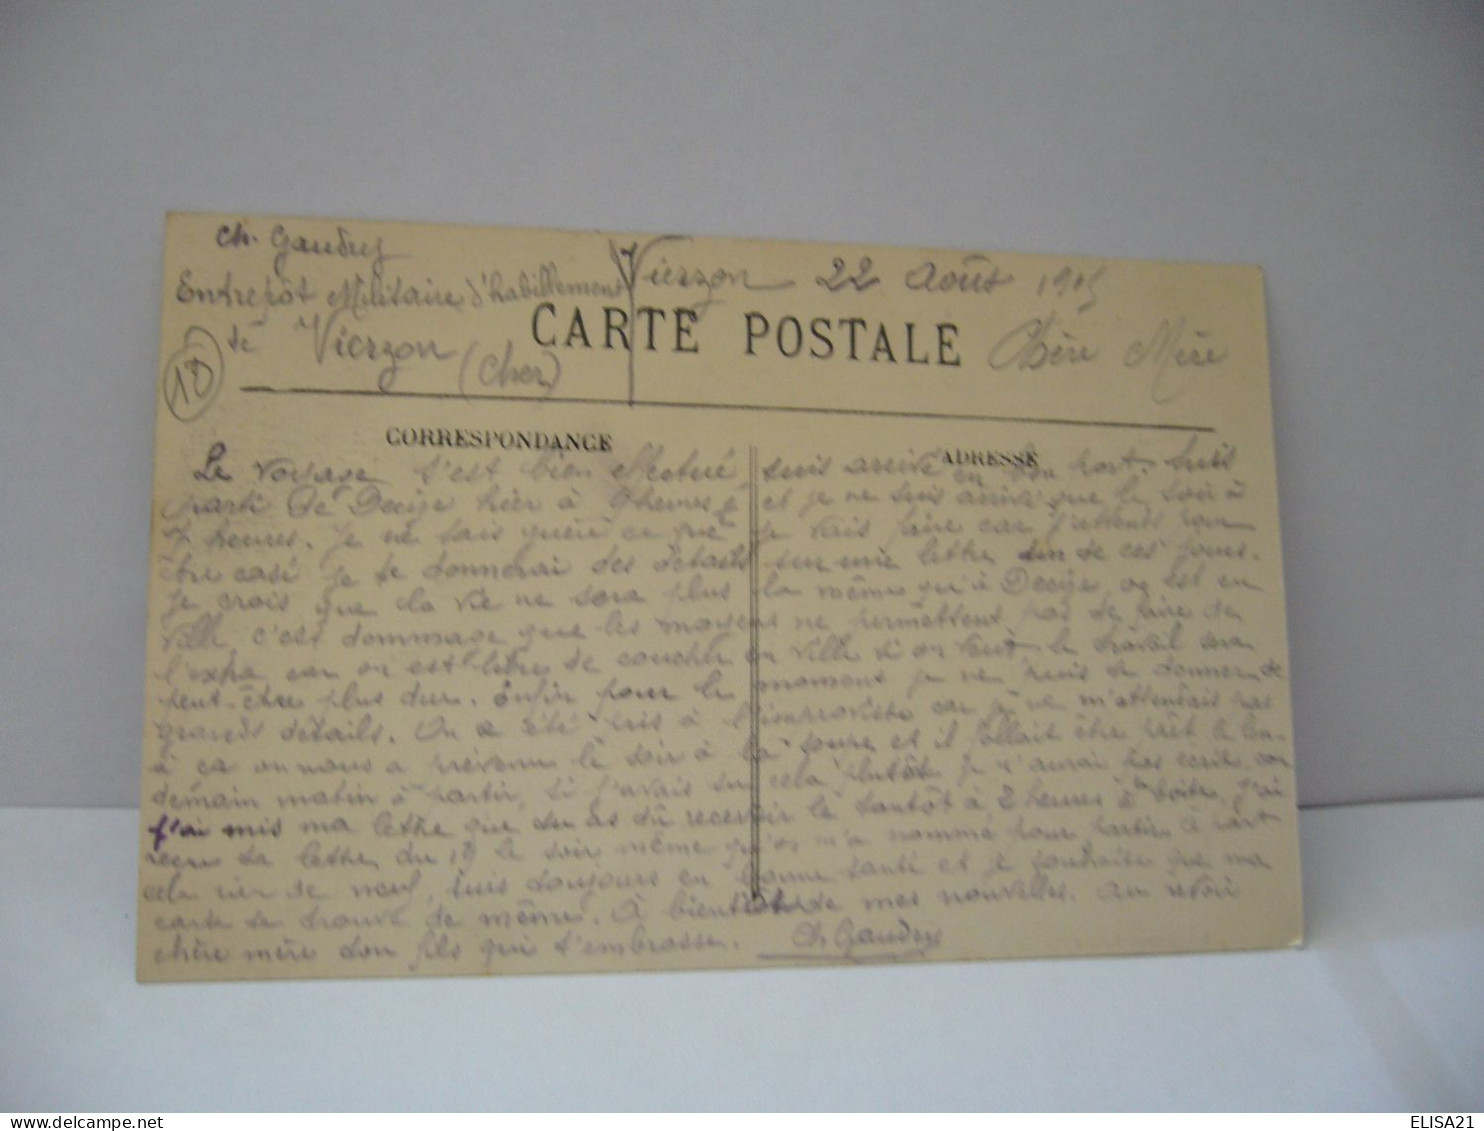 Ch. Gaudry
Entrepôt Militaire d'habillement
de Vierzon (Cher)
18
Vierzon 22 Août 1915
CARTE POSTALE
Chère Mère
CORRESPONDANCE
ADRESSE
Le voyage s'est bien effectué, suis arrivé en bon port. Suis
parti de Decize hier à heures et je ne suis arrivé que le soir à
7 heures. Je ne sais guère ce que je vais faire car j'attends pour
être casé je te donnerai des détails sur une lettre un de ces jours.
Je crois que la vie ne sera plus la même qu'à Decize, on est en
ville c'est dommage que les moyens ne permettent pas de faire de
l'extra car on est libre de coucher en ville si on veut le travail sera
peut-être plus dur. Enfin pour le moment je ne puis te donner de
grands détails. On a été pris à l'improviste car je ne m'attendais pas
à ça on nous a prévenu le soir à la soupe et il fallait être prêt le len-
demain matin à partir, si j'avais su cela plutôt je t'aurai pas écrit, car
j'ai mis ma lettre que tu as dû recevoir le tantôt à 2 heures à la boîte. J'ai
reçu ta lettre du 19 le soir même qu'on m'a nommé pour partir à part
cela rien de neuf, suis toujours en bonne santé et je souhaite que ma
carte te trouve de même. À bientôt de mes nouvelles. au revoir
chère mère ton fils qui t'embrasse. Ch Gaudry
ELISA21